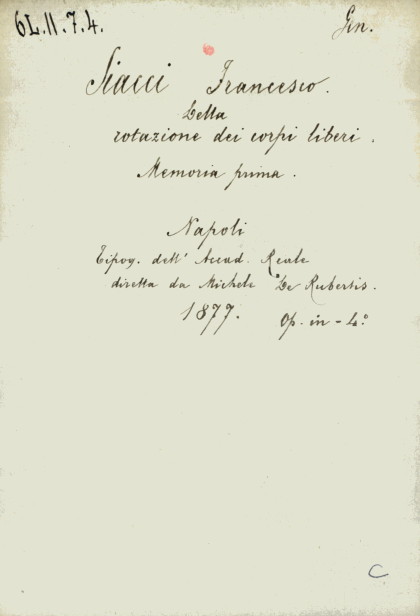 6L.11.7.4.
Gen.
Siacci Francesco.
Della
rotazione dei corpi liberi.
Memoria prima.
Napoli
Tipog. dell' Accad. Reale
diretta da Michele De Rubertis.
1877.
Op. in-4.º
C